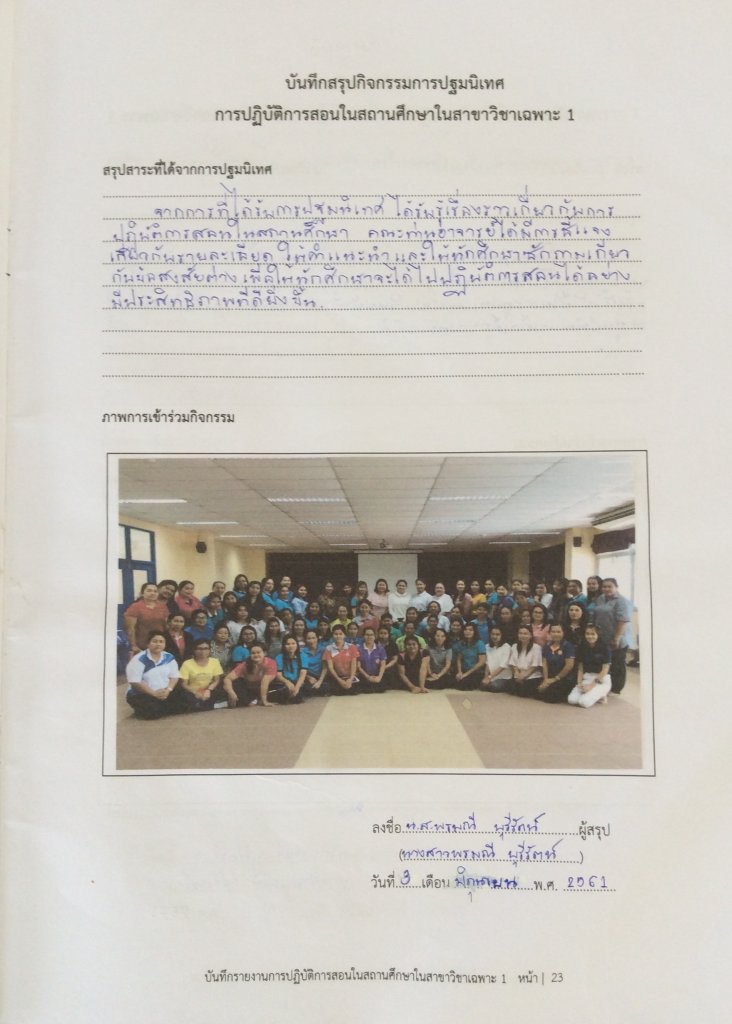 บันทึกสรุปกิจกรรมการปฐมนิเทศ
การปฏิบัติการสอนในสถานศึกษาในสาขาวิชาเฉพาะ 1
สรุปสาระที่ได้จากการปฐมนิเทศ
จากการที่ได้รับการปฐมนิเทศ ได้รับรู้เรื่องราวเกี่ยวกับการ
ปฏิบัติการสอนในสถานศึกษา คณะท่านอาจารย์ได้มีการชี้แจง
เกี่ยวกับรายละเอียด ให้คำแนะนำและให้นักศึกษาซักถามเกี่ยว
กับข้อสงสัยต่างๆ เพื่อให้นักศึกษาจะได้ไปปฏิบัติการสอนได้อย่าง
มีประสิทธิภาพที่ดียิ่งขึ้น.
ภาพการเข้าร่วมกิจกรรม
ลงชื่อ น.ส.พรมณี บุรีรัตน์ ผู้สรุป
(นางสาวพรมณี บุรีรัตน์)
วันที่ 3 เดือน มิถุนายน พ.ศ. 2561
บันทึกรายงานการปฏิบัติการสอนในสถานศึกษาในสาขาวิชาเฉพาะ 1 หน้า | 23